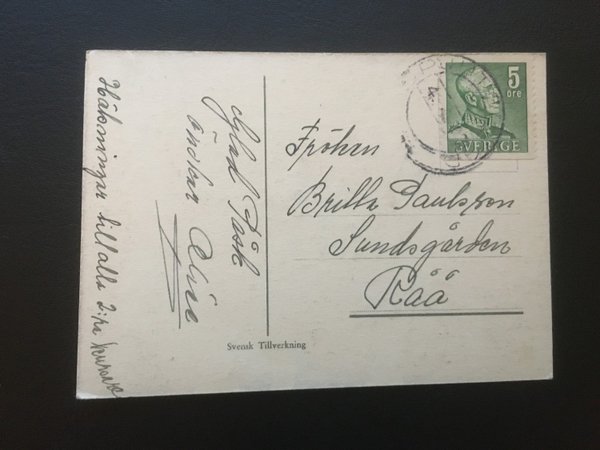 Hälsningar till alla 2:pr
Glad Påsk
önskar
Fröken
Britta Paulsson
Sundsgården
Råå
5
öre
SVERIGE
Svensk Tillverkning